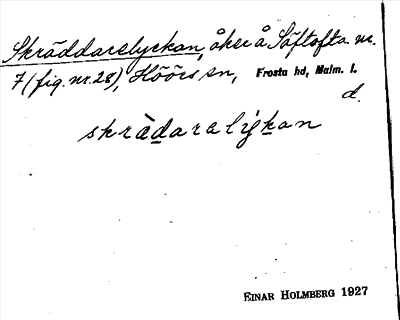 Skräddarelyckan, åker å Säftofta nr.
7 (fig. nr. 28), Höörs sn, Frosta hd, Malm. l.
d.
skrädaralykan
EINAR HOLMBERG 1927